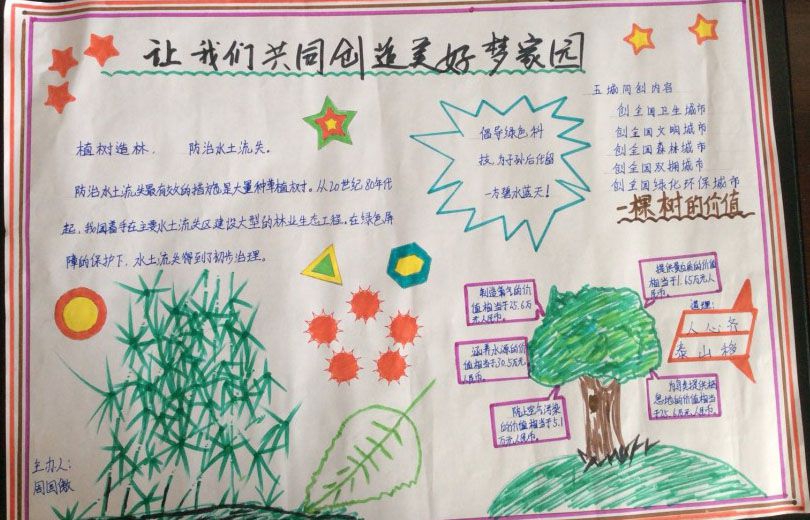 让我们共同创造美好梦家园
植树造林， 防治水土流失。
防治水土流失最有效的措施是大量种草植树。从20世纪80年代
起，我国着手在主要水土流失区建设大型的林业生态工程。在绿色屏
障的保护下，水土流失得到了初步治理。
倡导绿色科
技，为子孙后代留
一方碧水蓝天！
五城同创内容
创全国卫生城市
创全国文明城市
创全国森林城市
创全国双拥城市
创全国绿化环保城市
一棵树的价值
制造氧气的价
值相当于25.6万
元人民币。
提供蛋白质的价值
相当于1.65万元人
民币。
涵养水源的价
值相当于30.5万元
人民币。
防止空气污染
的价值相当于5.1
万元人民币。
为鸟类提供栖
息地的价值相当
于25.6万元人民币。
道理：
人心齐
泰山移
主办人：
周国傲